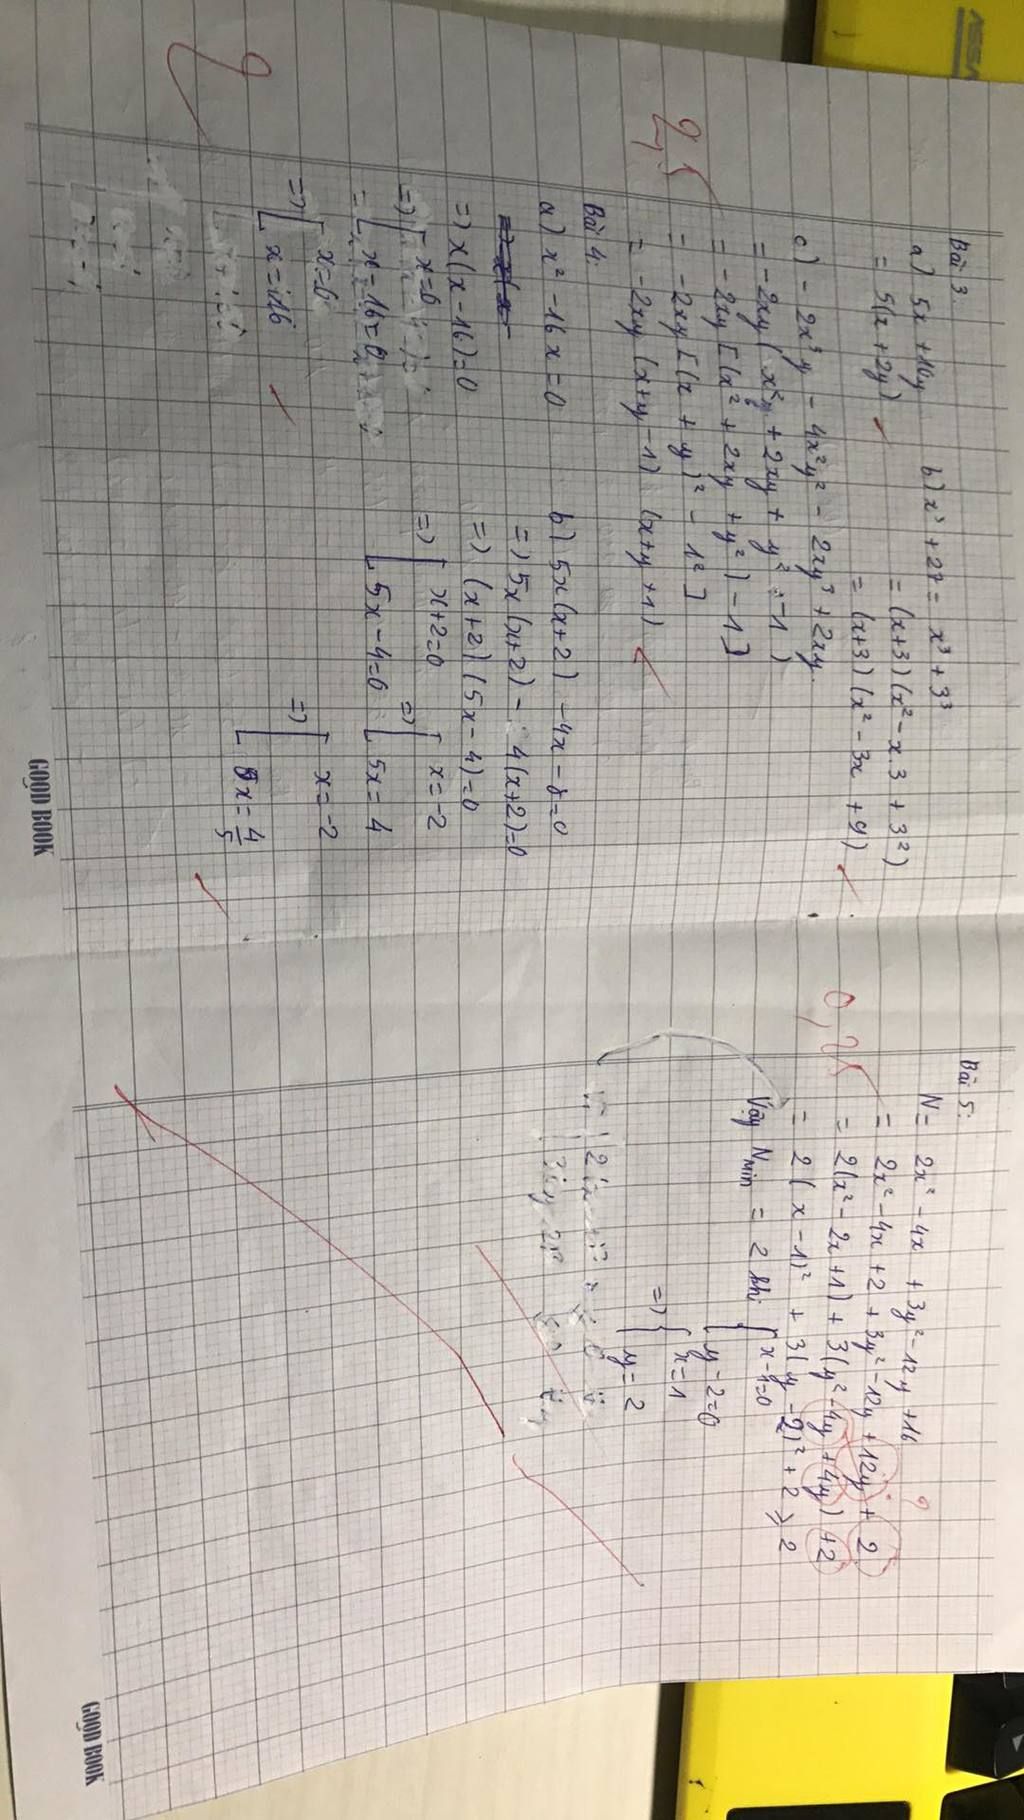 Bài 3:
a) 5x + 10y
= 5(x + 2y)
b) x³ + 27 = x³ + 3³
= (x+3)(x² - x.3 + 3²)
= (x+3)(x² - 3x + 9)
c) - 2x³y - 4x²y² - 2xy³ + 2xy.
= -2xy( x² + 2xy + y² - 1)
= -2xy[(x² + 2xy + y²) - 1]
= -2xy[(x + y)² - 1²]
= -2xy (x+y-1) (x+y+1)
2,5
Bài 4:
a) x² - 16x = 0
=> x(x-16)=0
=> [ x=0
[ x=16=0
=> [ x=0
[ x=16
2
b) 5x(x+2) - 4x - 8=0
=> 5x(x+2) - 4(x+2)=0
=> (x+2)(5x-4)=0
=> [ x+2=0
[ 5x-4=0
=> [ x=-2
[ 5x=4
=> [ x=-2
[ x=4/5
GOOD BOOK
Bài 5:
N = 2x² - 4x + 3y² - 12y + 16
= 2x² - 4x + 2 + 3y² - 12y + 12y + 2
= 2(x² - 2x + 1) + 3(y² - 4y + 4y) + 2
= 2(x-1)² + 3(y-2)² + 2 ≥ 2
0,25
?
Vậy Nmin = 2 khi { x-1=0
{ y-2=0
=> { x=1
{ y=2
GOOD BOOK
ASSA